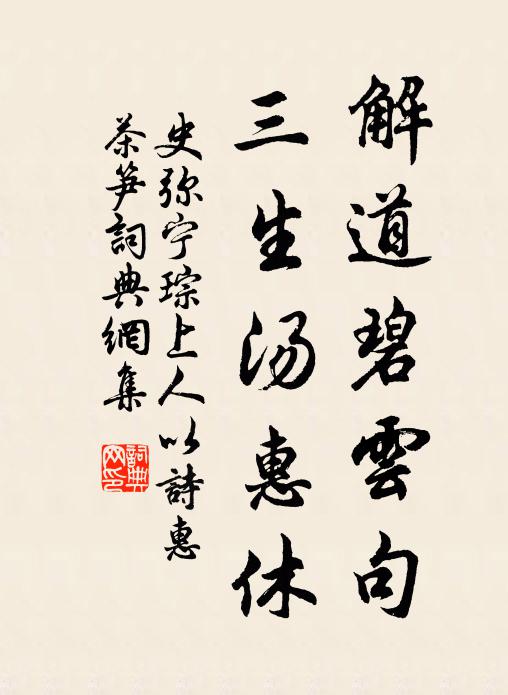 解道碧雲句
三生汤惠休
史弥宁琮上人以詩惠
茶笋詞典網集
詞典网印